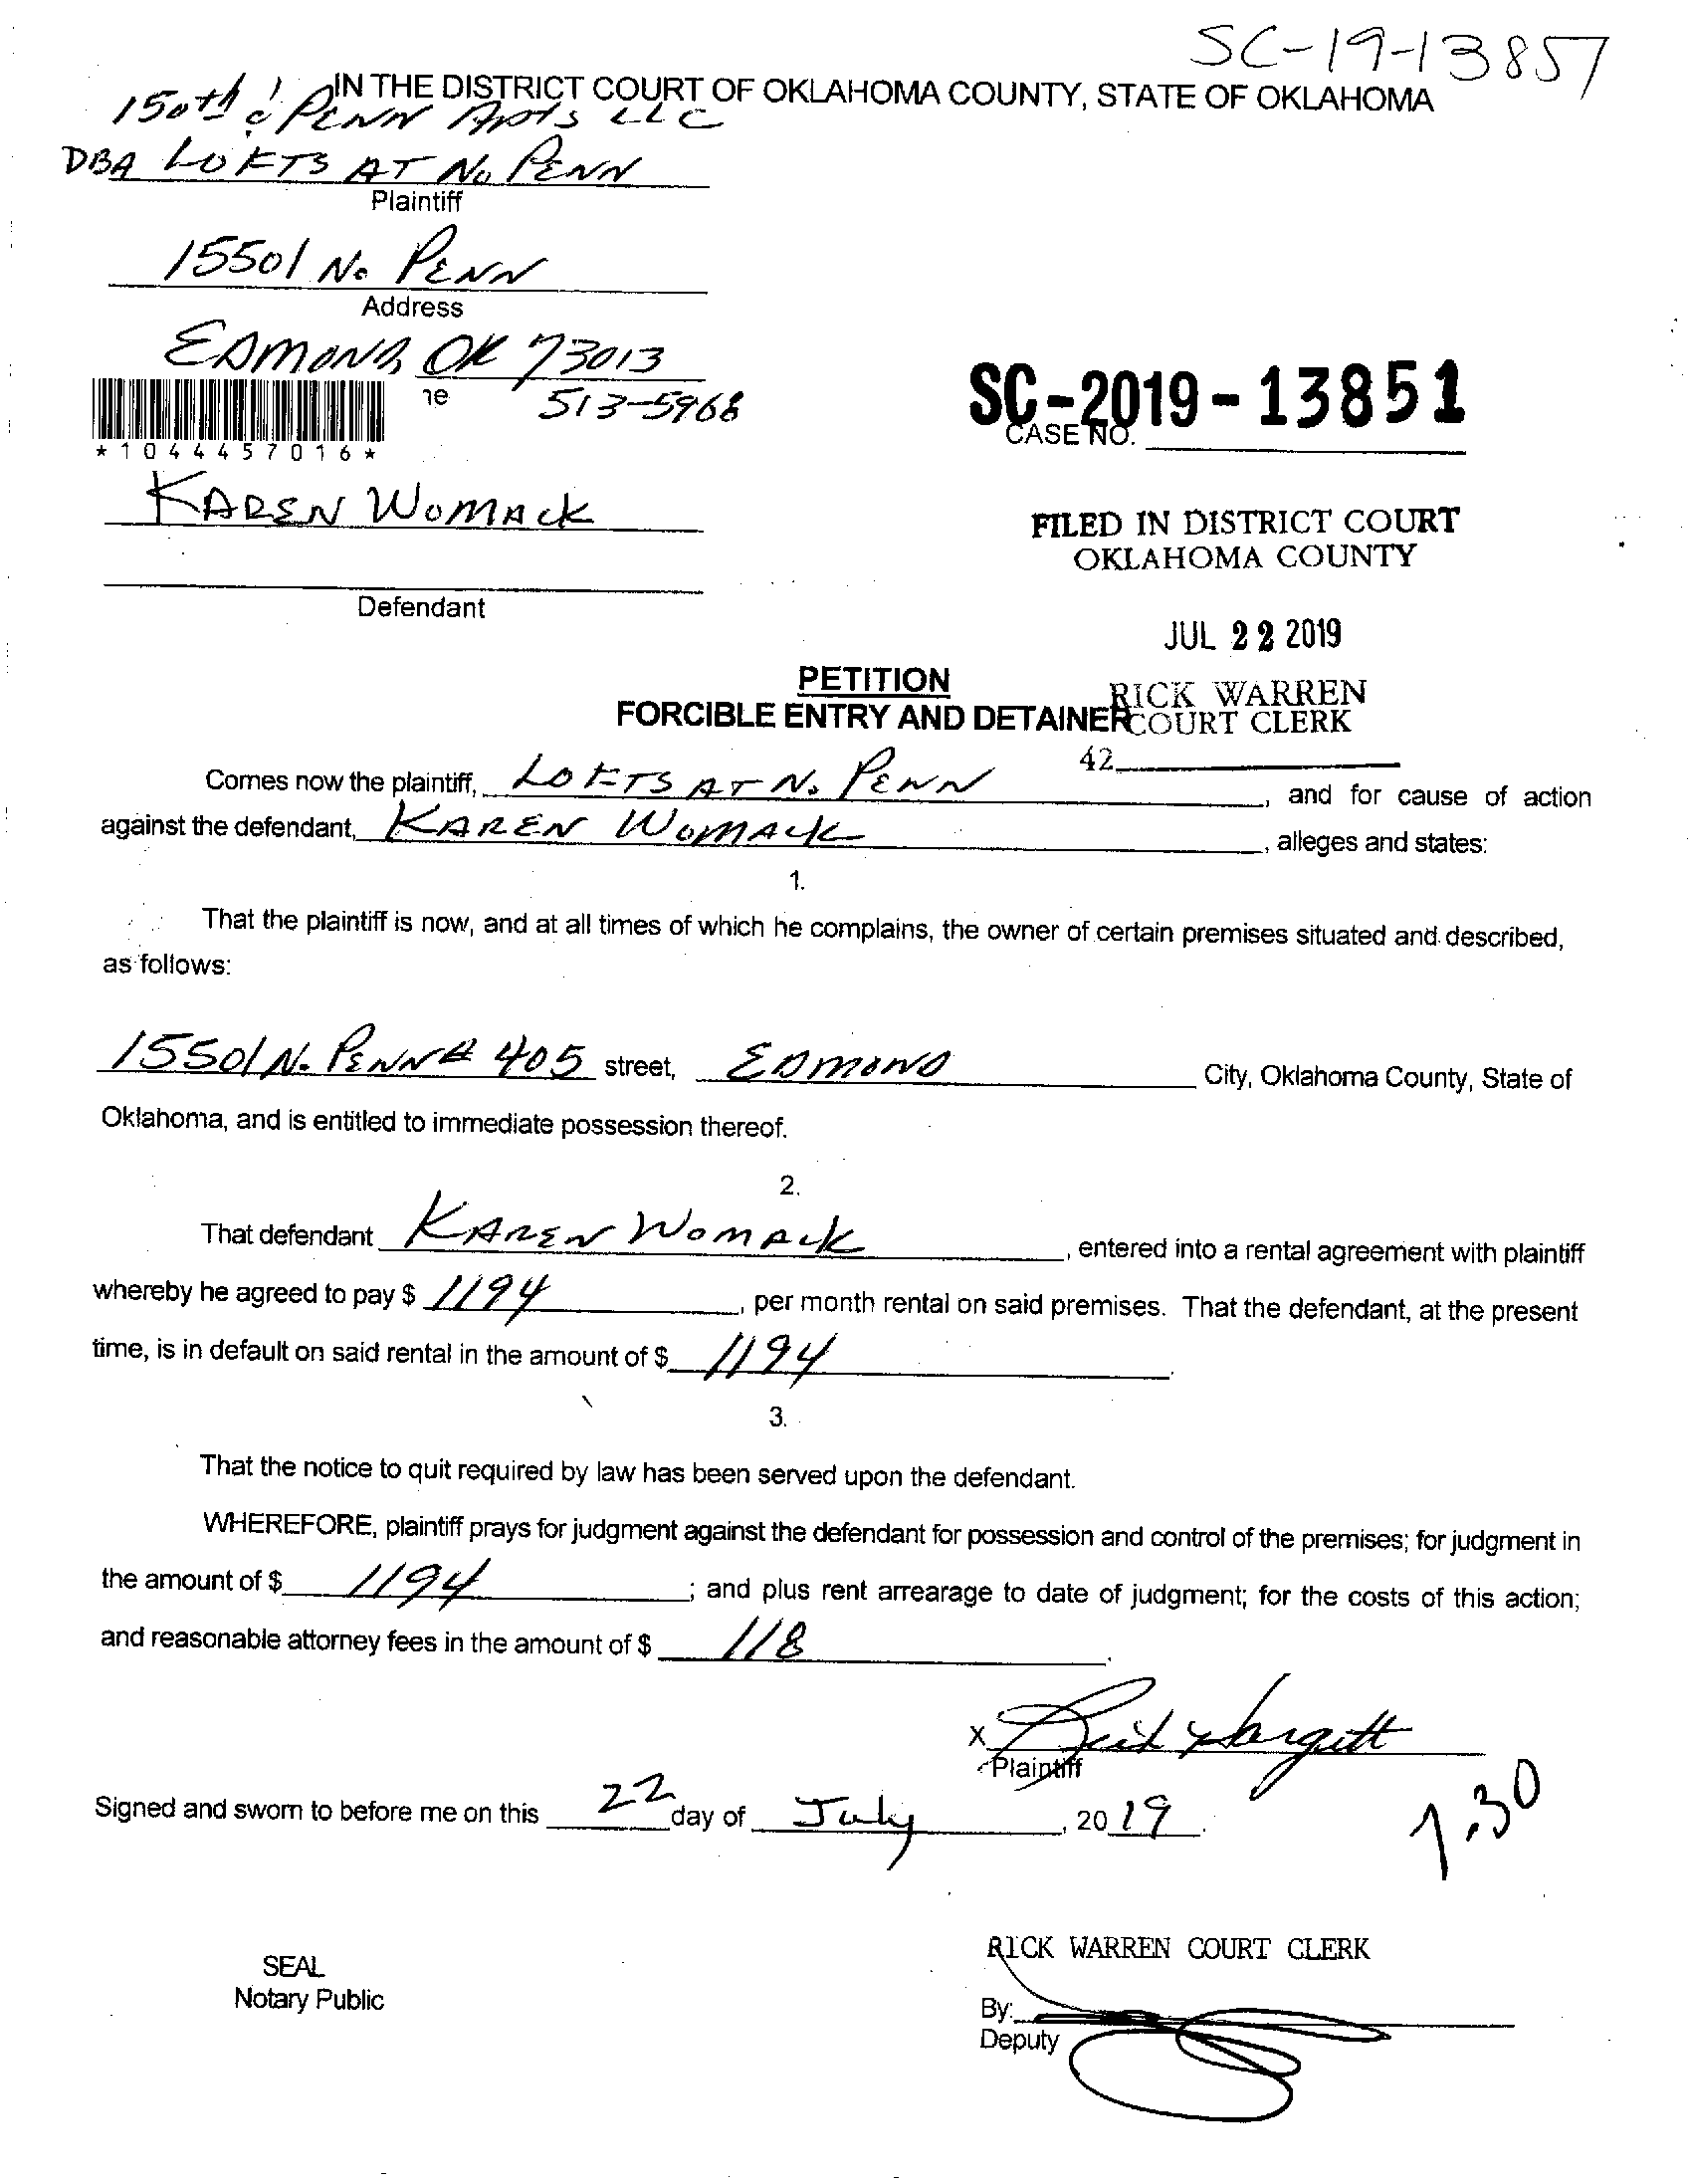 SC-19-13857
IN THE DISTRICT COURT OF OKLAHOMA COUNTY, STATE OF OKLAHOMA
150th & PENN Apts LLC
DBA LOFTS AT No PENN
Plaintiff
15501 No PENN
Address
EDMOND, OK 73013
ne 513-5968
*1044457016*
SC-2019-13851
CASE NO.
KAREN WOMACK
Defendant
FILED IN DISTRICT COURT
OKLAHOMA COUNTY
JUL 22 2019
RICK WARREN
COURT CLERK
42
PETITION
FORCIBLE ENTRY AND DETAINER
Comes now the plaintiff, LOFTS AT N. PENN, and for cause of action
against the defendant, KAREN WOMACK, alleges and states:
1.
That the plaintiff is now, and at all times of which he complains, the owner of certain premises situated and described,
as follows:
15501 N. PENN # 405 street, EDMOND City, Oklahoma County, State of
Oklahoma, and is entitled to immediate possession thereof.
2.
That defendant KAREN WOMACK, entered into a rental agreement with plaintiff
whereby he agreed to pay $ 1194, per month rental on said premises. That the defendant, at the present
time, is in default on said rental in the amount of $ 1194.
3.
That the notice to quit required by law has been served upon the defendant.
WHEREFORE, plaintiff prays for judgment against the defendant for possession and control of the premises; for judgment in
the amount of $ 1194; and plus rent arrearage to date of judgment; for the costs of this action;
and reasonable attorney fees in the amount of $ 118.
X
Plaintiff
Signed and sworn to before me on this 22 day of July, 2019.
1.30
SEAL
Notary Public
RICK WARREN COURT CLERK
By:
Deputy